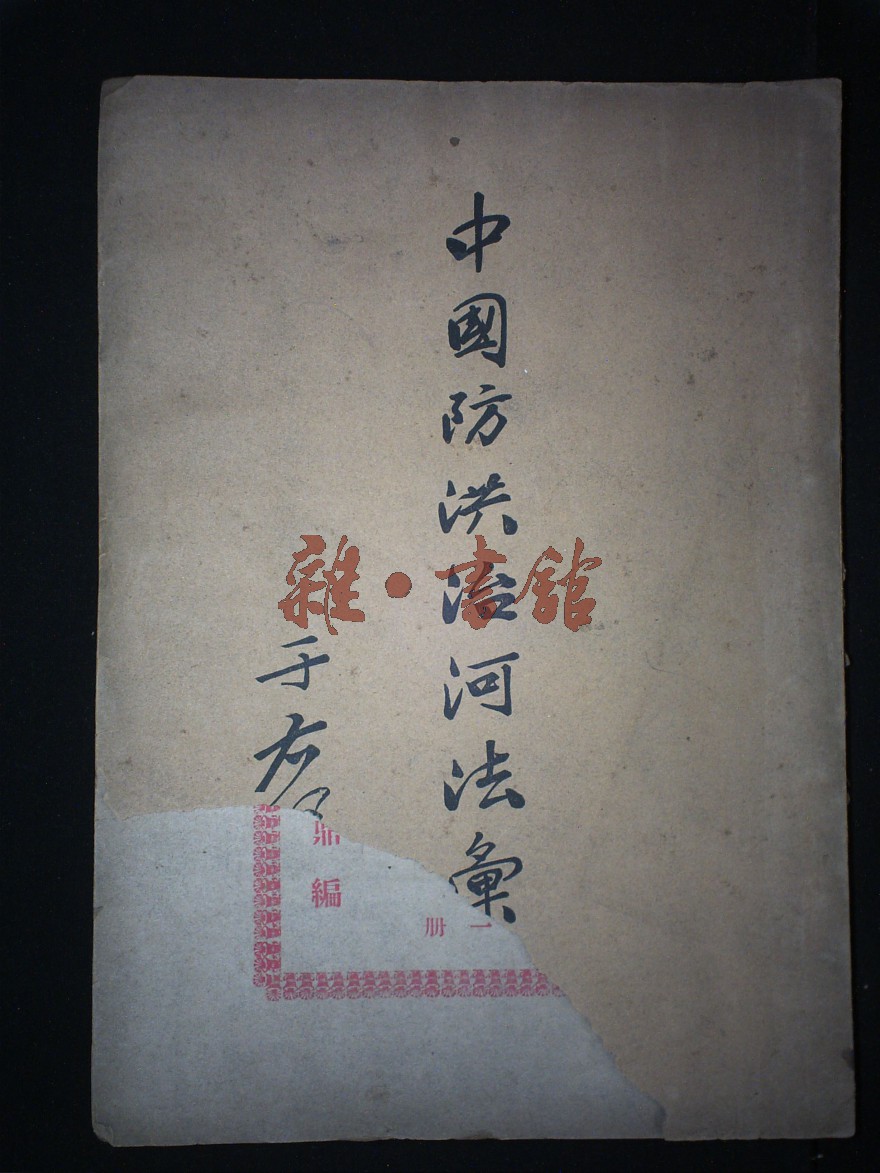 中國防洪治河法彙
于右
編
一册
雜·書舘